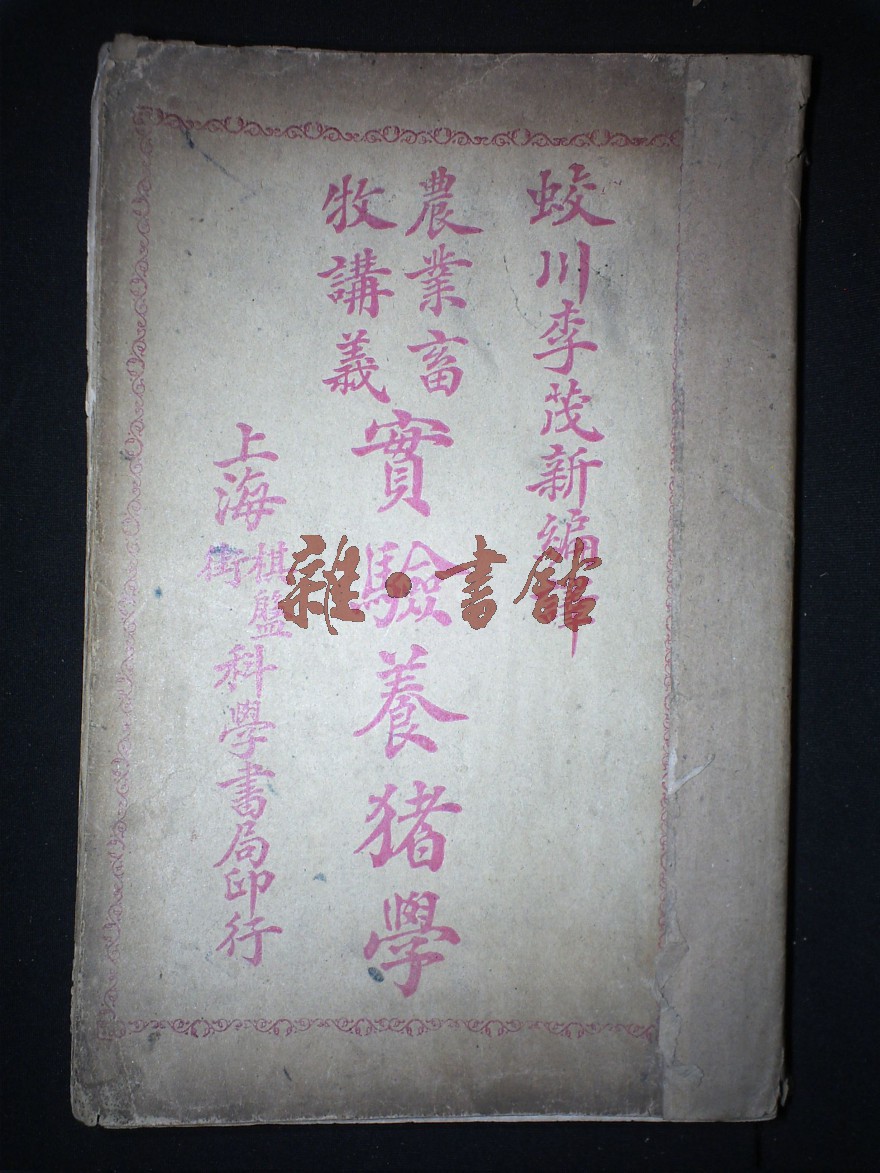 蛟川李茂新編
農業畜
牧講義
實驗養猪學
上海
棋盤
街
科學書局印行
雜•書舘